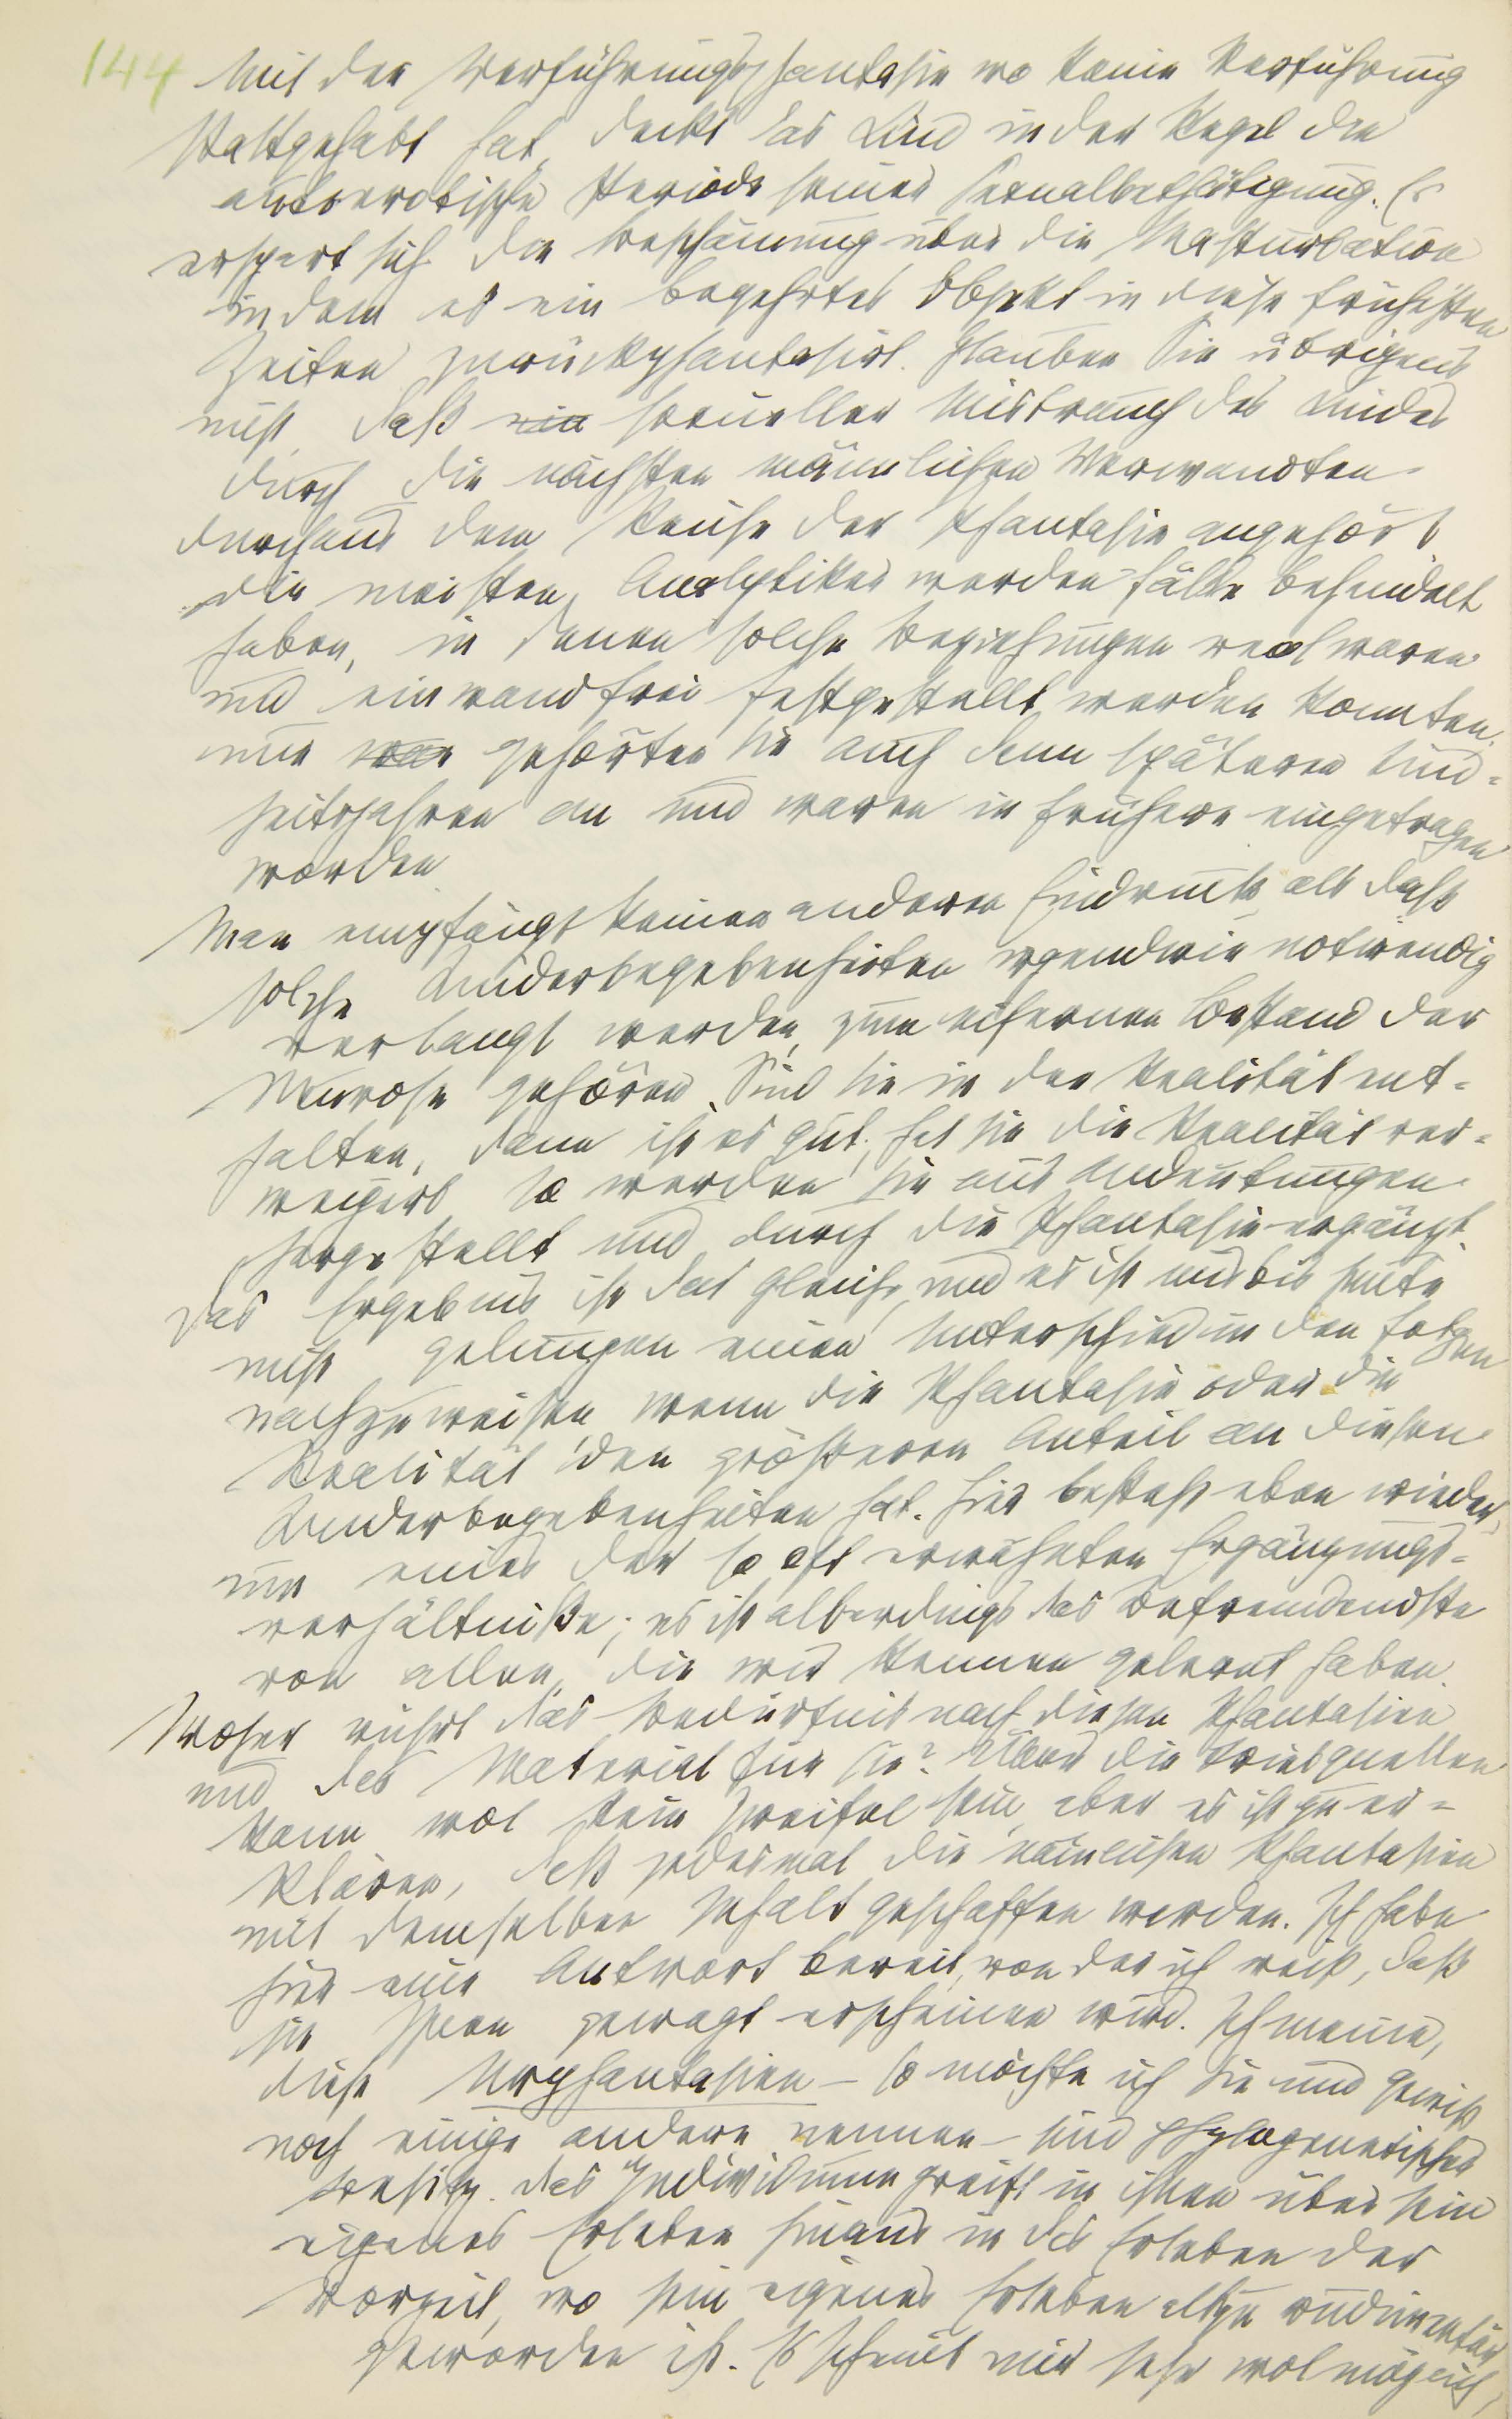 144 Mit der Verführungsphantasie wo keine Verführung
stattgehabt hat, deckt das Kind in der Regel die
autoerotische Periode seiner Sexualbethätigung. Es
erspart sich die Beschämung über die Masturbation
indem es ein begehrtes Objekt in diese frühesten
Zeiten zurückphantasirt. Glauben Sie übrigens
nicht daß ein sexueller Misbrauch des Kindes
durch die nächsten männlichen Verwandten
durchaus dem Reiche der Phantasie angehört
die meisten Analytiker werden Fälle behandelt
haben, in denen solche Beziehungen real waren
und einwandfrei festgestellt werden konnten.
nur gehörten sie auch dann späteren Kind=
heitsjahren an und waren in frühere eingetragen
worden
Man empfängt keinen anderen Eindruck als daß
solche Kinderbegebenheiten irgendwie notwendig
verlangt werden, zum eisernen Bestand der
Neurose gehören. Sind sie in der Realität ent=
halten, dann ist es gut; hat sie die Realität ver=
weigert so werden sie aus Andeutungen
hergestellt und durch die Phantasie ergänzt.
Das Ergebnis ist das gleiche, und es ist uns bis heute
nicht gelungen einen Unterschied in den Folgen
nachzuweisen, wenn die Phantasie oder die
Realität den größeren Anteil an diesen
Kinderbegebenheiten hat. Hier besteht eben wieder
nur eines der so oft erwähnten Ergänzungs=
verhältniße; es ist allerdings das befremdendste
von allen, die wir kennen gelernt haben.
Woher rührt das Bedürfnis nach diesen Phantasien
und das Material für sie? Über die Triebquellen
kann wol kein Zweifel sein, aber es ist zu er=
klären, daß jedesmal die nämlichen Phantasien
mit demselben Inhalt geschaffen werden. Ich habe
hier eine Antwort bereit, von der ich weiß, daß
sie Ihnen gewagt erscheinen wird. Ich meine,
diese Urphantasien – so möchte ich sie und gewiß
noch einige andere nennen – sind phylogenetischer
Besitz. Das Individuum greift in ihnen über sein
eigenes Erleben hinaus in das Erleben der
Vorzeit, wo sein eigenes Erleben allzu rudimentär
geworden ist. Es scheint mir sehr wol möglich,